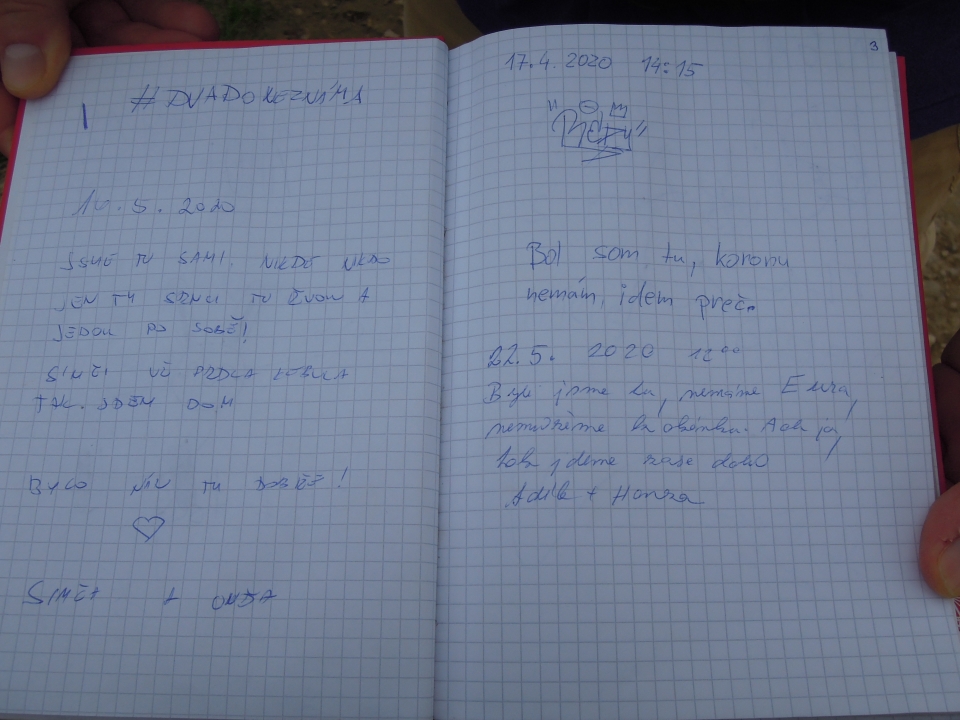 #DVADONEZNÁMA
2020
JSME TU SAMI. NIKDE NIKDO
JEN TU SRNCI TU ŘVOU A
JEDOU PO SOBĚ!
SIMČI UŽ
TAK JDEM DOM
BYLO NÁM TU DOBŘE!
SIMČA A ONDRA
3
17.4.2020 14:15
Bol som tu, koronu
nemám, idem preč.
22.5. 2020 12⁰⁰
Byli jsme tu, nemáme Eura,
nemůžeme do okénka.
jdeme zase dolů
Adéla + Honza